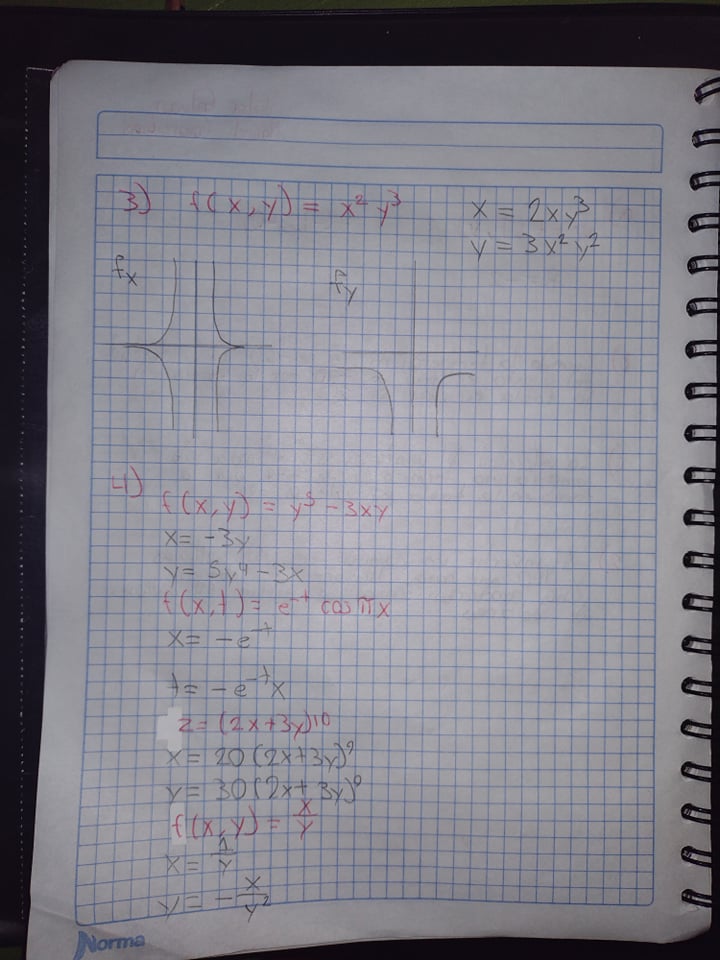 3) f(x,y) = x² y³
x = 2xy³
y = 3x² y²
fx
fy
4)
f(x,y) = y⁵ - 3xy
x = -3y
y = 5y⁴ - 3x
f(x,t) = e⁻ᵗ cos πx
x = -e⁻ᵗ
t = -e⁻ᵗ x
z = (2x+3y)10
x = 20(2x+3y)⁹
y = 30(2x+3y)⁹
f(x,y) = x/y
x = 1/y
y = - x/y²
Norma